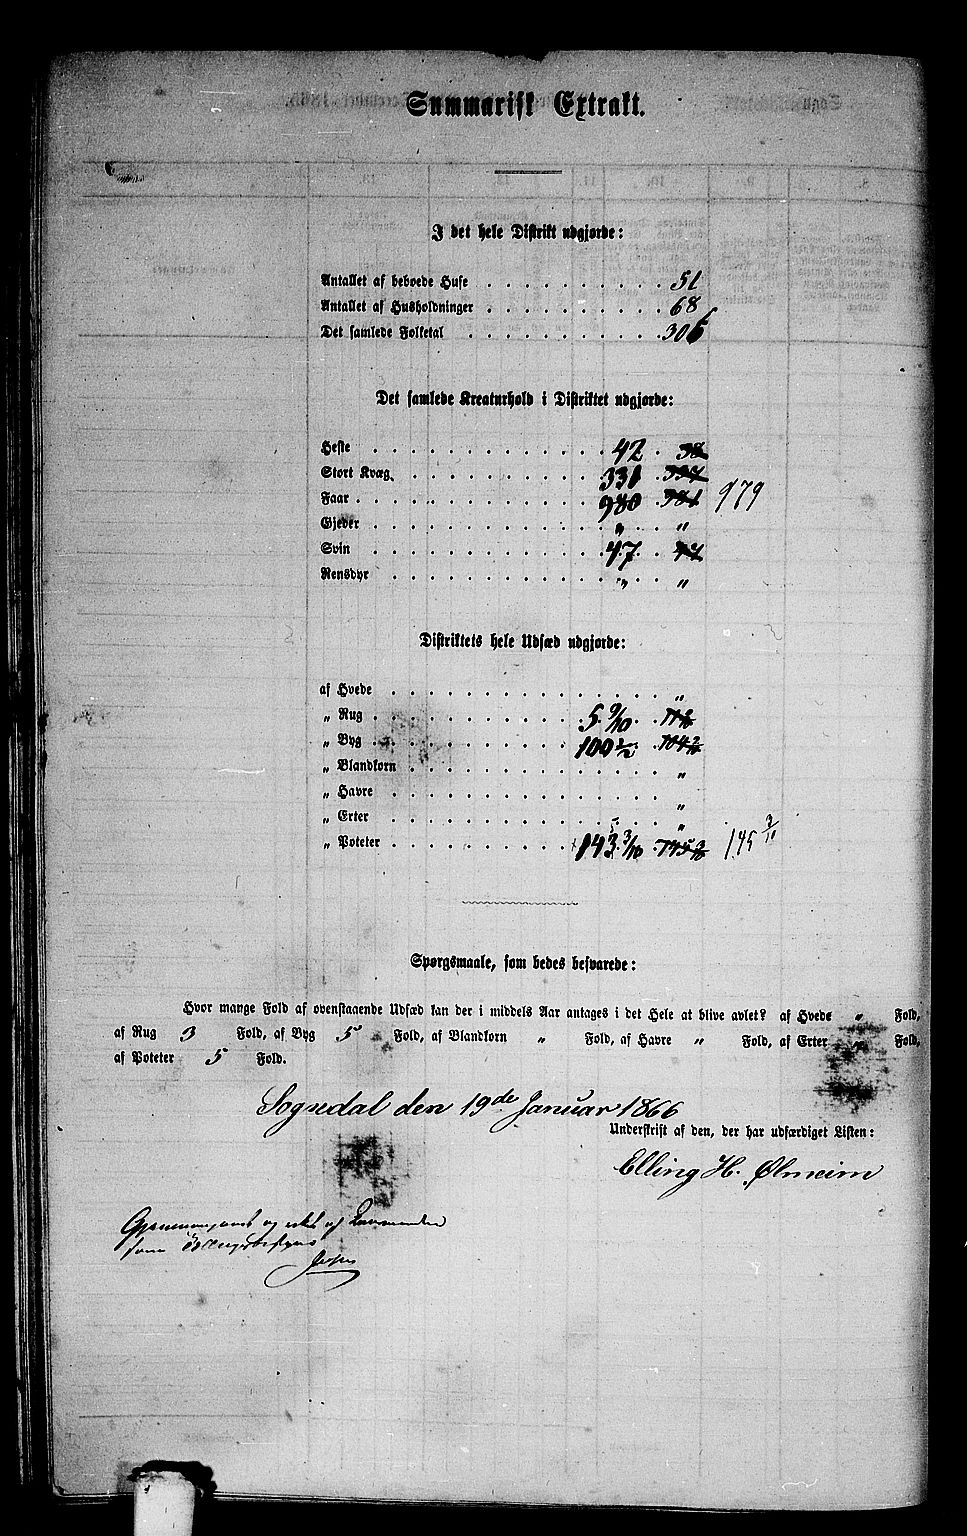 Summarisk Extrakt.
I det hele Distrikt udgjorde:
Antallet af beboede Huse . . . . . . . . . . 51
Antallet af Husholdninger . . . . . . . . . . 68
Det samlede Folketal . . . . . . . . . . 306
Det samlede Kreaturhold i Distriktet udgjorde:
Heste . . . . . . . . . . 42 38
Stort Kvæg . . . . . . . . . . 331 334
Faar . . . . . . . . . . 980 981 979
Gjeder . . . . . . . . . . „ „
Svin . . . . . . . . . . 47 44
Rensdyr . . . . . . . . . . „ „
Distriktets hele Udsæd udgjorde:
af Hvede . . . . . . . . . . „
„ Rug . . . . . . . . . . 5 9/10
„ Byg . . . . . . . . . . 100 1/2 104
„ Blandkorn . . . . . . . . . . „
„ Havre . . . . . . . . . . „
„ Erter . . . . . . . . . . „
„ Poteter . . . . . . . . . . 143 3/10 145 145
Spørgsmaale, som bedes besvarede:
Hvor mange Fold af ovenstaaende Udsæd kan der i middels Aar antages i det Hele at blive avlet? af Hvede „ Fold,
af Rug 3 Fold, af Byg 5 Fold, af Blandkorn „ Fold, af Havre „ Fold, af Erter „ Fold,
af Poteter 5 Fold.
Sogndal den 19de Januar 1866
Underskrift af den, der har udfærdiget Listen:
Elling H. Ølmeim
og af